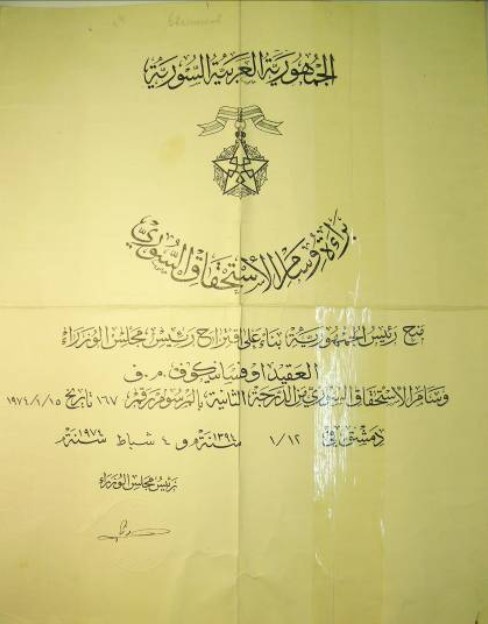 الجُمْهُورِيَّة العَرَبيَّة السُّورِيَّة
بَراءَة وِسَام الاِسْتِحْقَاق السُّورِيّ
منح رئيس الجمهوريّة بناءً على اقتراح رئيس مجلس الوزراء
العقيد اوفسيانيكوف م.ف
وسام الاستحقاق السوري من الدرجة الثانية بالمرسوم رقم ١٦٧ تاريخ
دمشق في ١/١٢ سنة ١٣٩٤ و ٤ شباط سنة ١٩٧٤
رئيس مجلس الوزراء